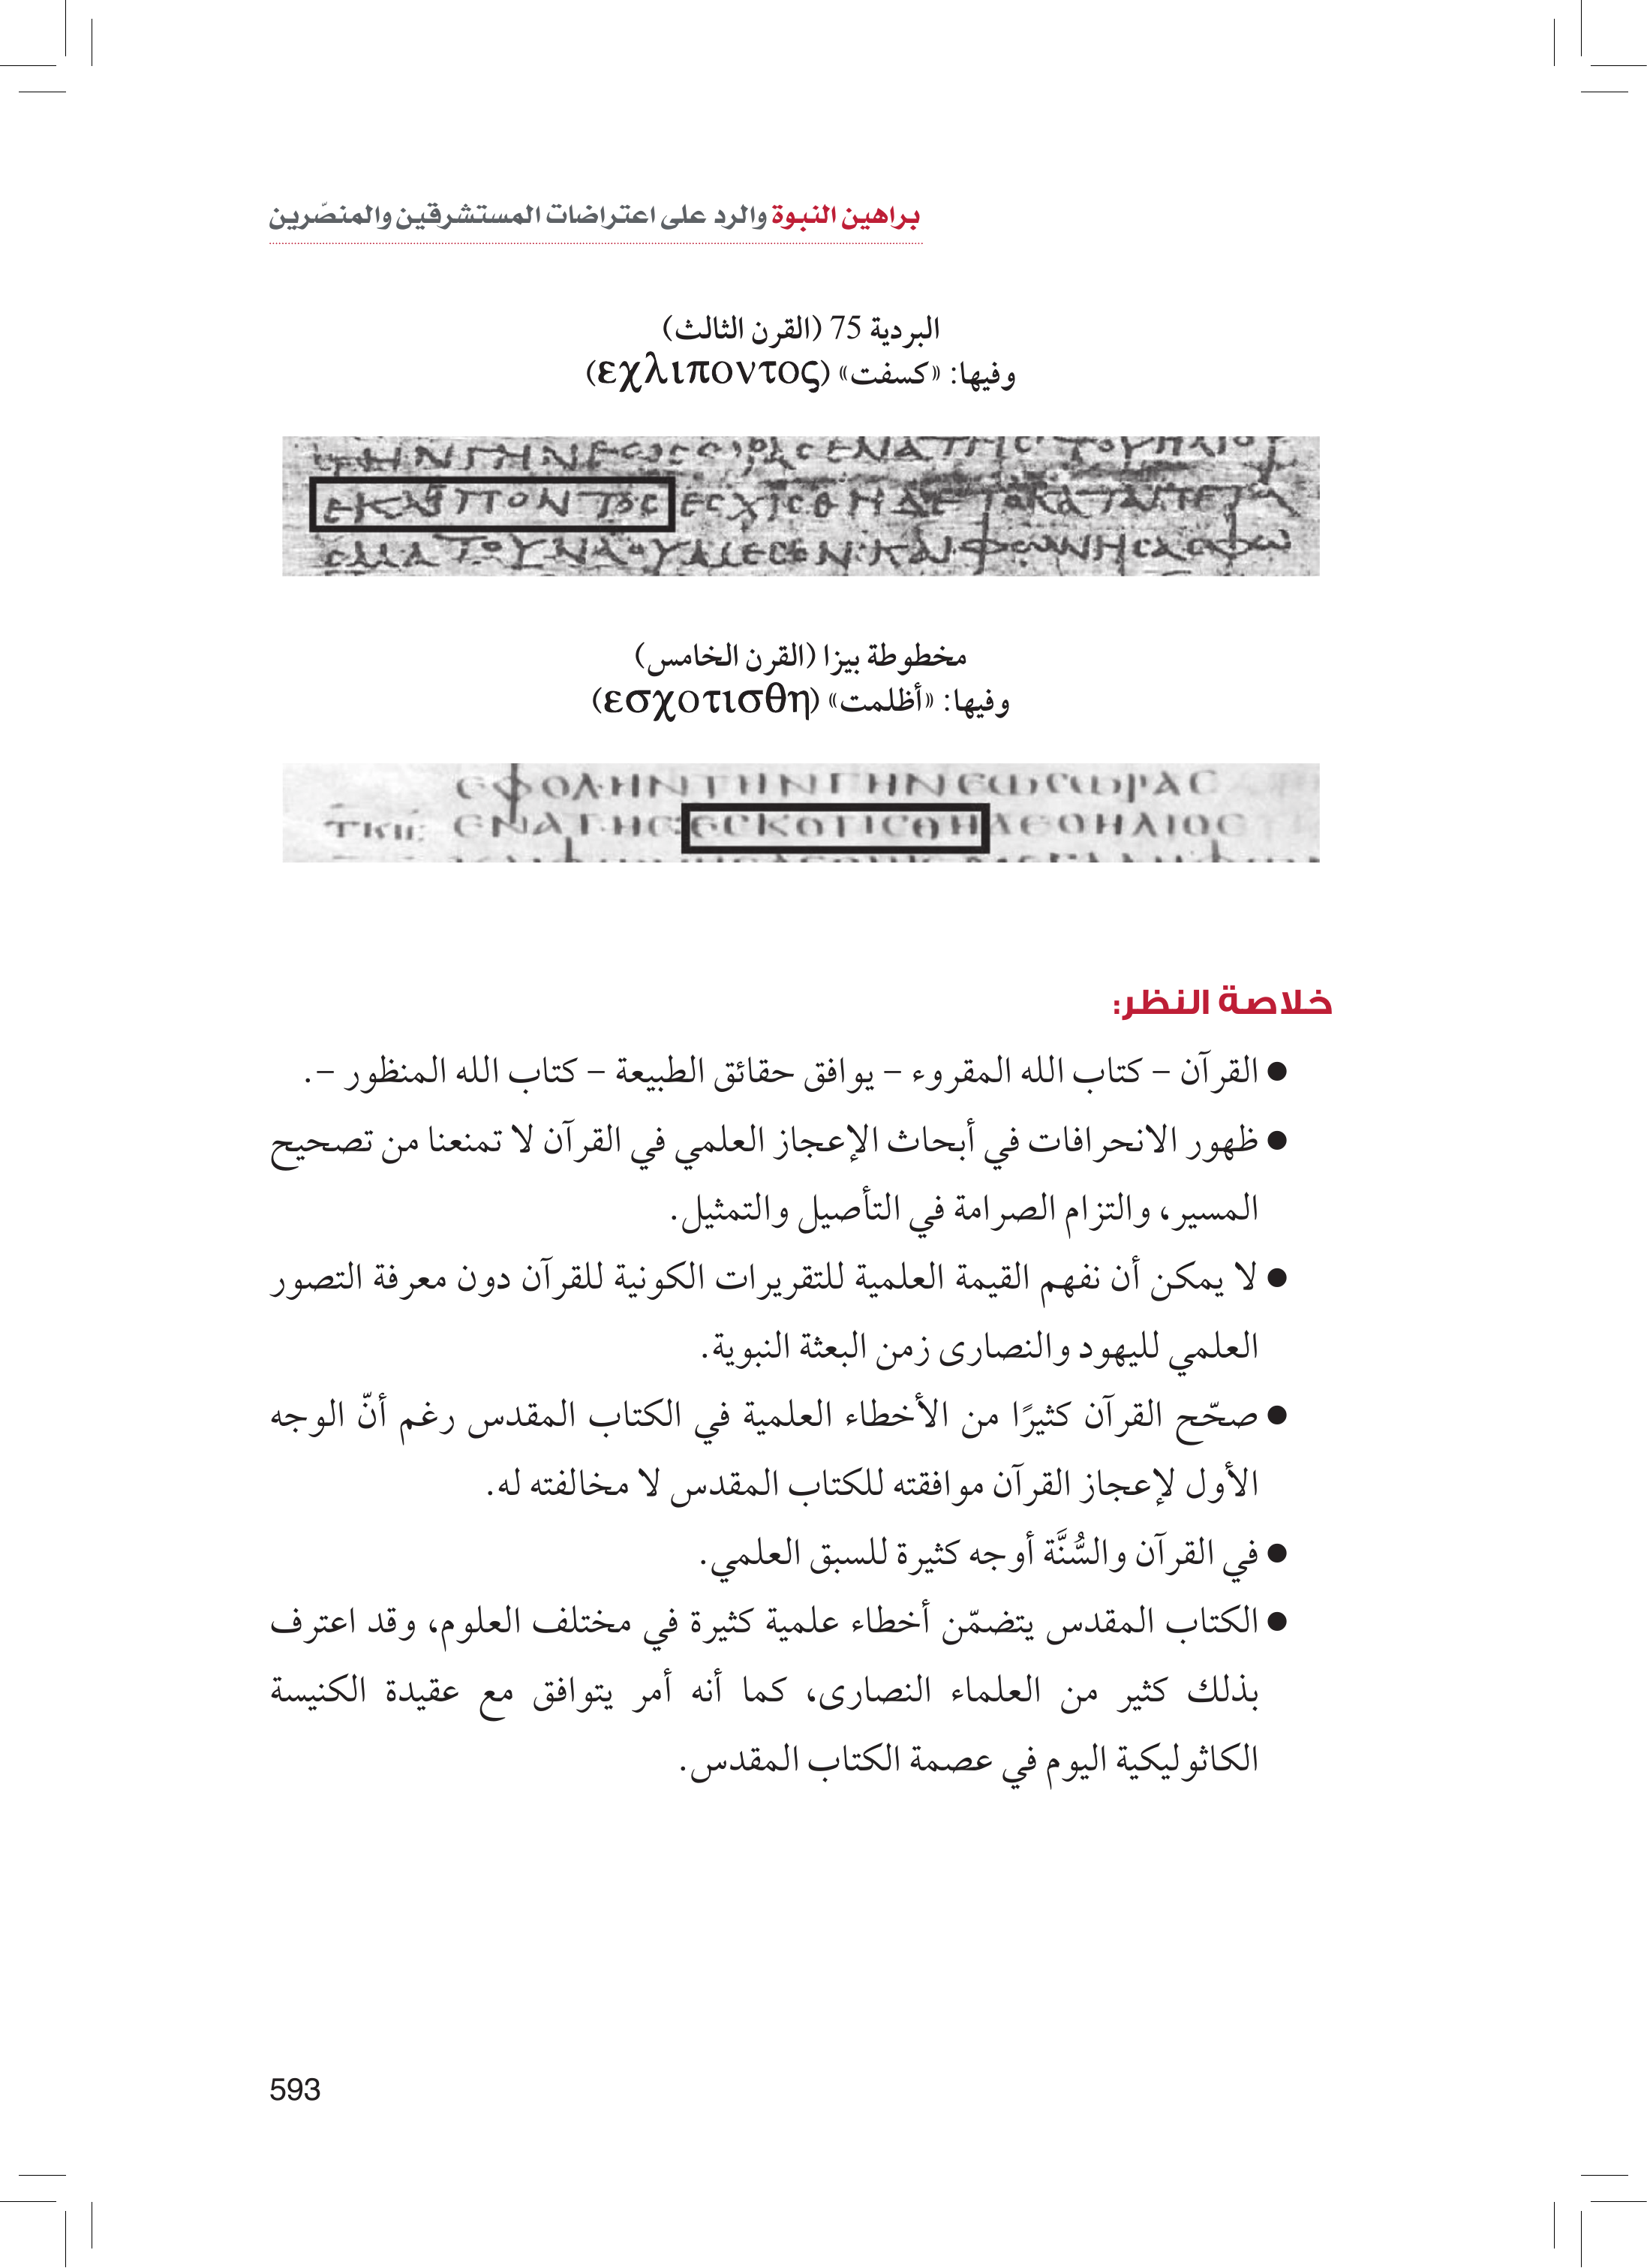 براهين النبوة والرد على اعتراضات المستشرقين والمنصّرين
البردية 75 (القرن الثالث)
وفيها: «كسفت» (εχλιποντος)
ΕΚΛΙΠΟΝΤΟΣ ΕϹΧΙϹΘΗ ΔΕ ΤΟ ΚΑΤΑΠΕΤΑ
ΜΑ ΤΟΥ ΝΑΟΥ ΜΕϹΟΝ ΚΑΙ ΦΩΝΗϹΑϹ ΦΩ
مخطوطة بيزا (القرن الخامس)
وفيها: «أظلمت» (εσχοτισθη)
ΕΦ ΟΛΗΝ ΤΗΝ ΓΗΝ ΕΩϹ ΩΡΑϹ
ΕΝΑΤΗϹ ΕϹΚΟΤΙϹΘΗ ΔΕ Ο ΗΛΙΟϹ
خلاصة النظر:
● القرآن – كتاب الله المقروء – يوافق حقائق الطبيعة – كتاب الله المنظور –.
● ظهور الانحرافات في أبحاث الإعجاز العلمي في القرآن لا تمنعنا من تصحيح
المسير، والتزام الصرامة في التأصيل والتمثيل.
● لا يمكن أن نفهم القيمة العلمية للتقريرات الكونية للقرآن دون معرفة التصور
العلمي لليهود والنصارى زمن البعثة النبوية.
● صحّح القرآن كثيرًا من الأخطاء العلمية في الكتاب المقدس رغم أنّ الوجه
الأول لإعجاز القرآن موافقته للكتاب المقدس لا مخالفته له.
● في القرآن والسُّنَّة أوجه كثيرة للسبق العلمي.
● الكتاب المقدس يتضمّن أخطاء علمية كثيرة في مختلف العلوم، وقد اعترف
بذلك كثير من العلماء النصارى، كما أنه أمر يتوافق مع عقيدة الكنيسة
الكاثوليكية اليوم في عصمة الكتاب المقدس.
593